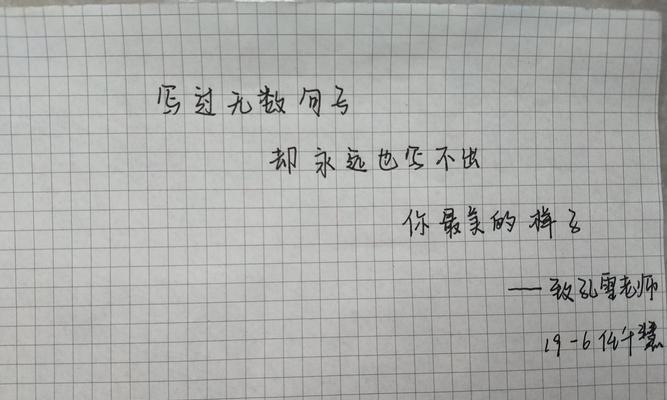 写过无数句号
却永远也写不出
你最美的样子
——致孔雪老师
19-6任千慧